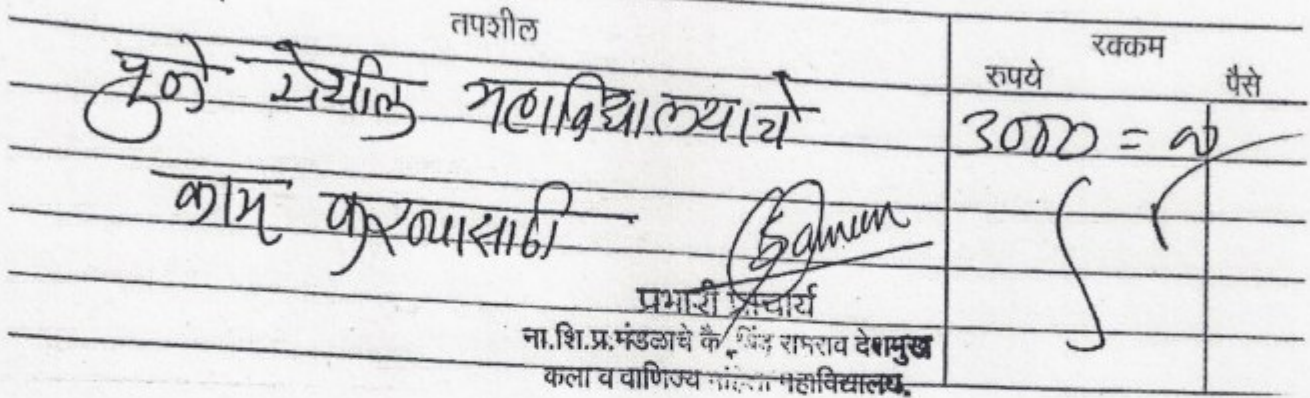 तपशील
रक्कम
रुपये पैसे
पुणे येथील महाविद्यालयाचे 3000 = 00
काम करण्यासाठी
प्रभारी प्राचार्य
ना.शि.प्र.मंडळाचे कै. रामराव देशमुख
कला व वाणिज्य महिला महाविद्यालय.